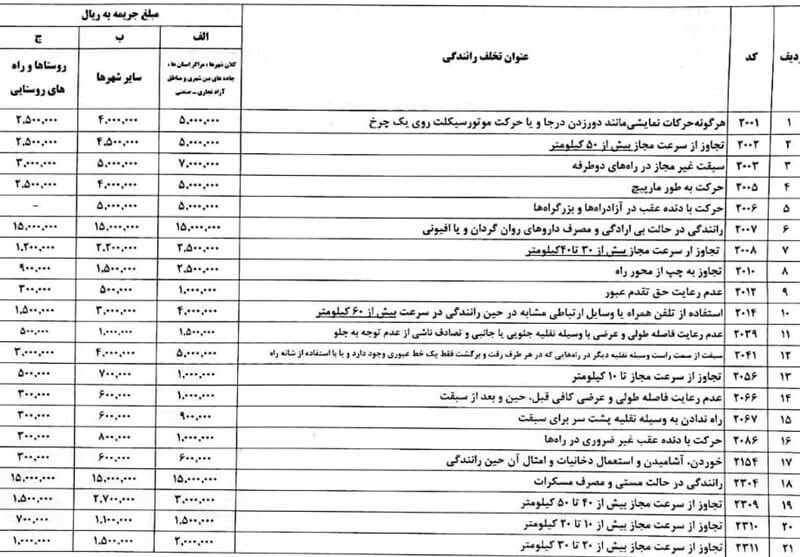 ردیف | کد | عنوان تخلف رانندگی | مبلغ جریمه به ریال
الف | ب | ج
کلان شهرها ، مراکز استان ها ، جاده های بین شهری و مناطق آزاد تجاری ـ صنعتی | سایر شهرها | روستاها و راه های روستایی
۱ | ۲۰۰۱ | هرگونه حرکات نمایشی مانند دورزدن درجا و یا حرکت موتورسیکلت روی یک چرخ | ۵,۰۰۰,۰۰۰ | ۴,۰۰۰,۰۰۰ | ۲,۵۰۰,۰۰۰
۲ | ۲۰۰۲ | تجاوز از سرعت مجاز بیش از ۵۰ کیلومتر | ۵,۰۰۰,۰۰۰ | ۴,۵۰۰,۰۰۰ | ۲,۵۰۰,۰۰۰
۳ | ۲۰۰۳ | سبقت غیر مجاز در راه‌های دوطرفه | ۷,۰۰۰,۰۰۰ | ۵,۰۰۰,۰۰۰ | ۳,۰۰۰,۰۰۰
۴ | ۲۰۰۵ | حرکت به طور مارپیچ | ۵,۰۰۰,۰۰۰ | ۴,۰۰۰,۰۰۰ | ۲,۵۰۰,۰۰۰
۵ | ۲۰۰۶ | حرکت با دنده عقب در آزادراه‌ها و بزرگراه‌ها | ۵,۰۰۰,۰۰۰ | ۵,۰۰۰,۰۰۰ | –
۶ | ۲۰۰۷ | رانندگی در حالت بی ارادگی و مصرف داروهای روان گردان و یا افیونی | ۱۵,۰۰۰,۰۰۰ | ۱۵,۰۰۰,۰۰۰ | ۱۵,۰۰۰,۰۰۰
۷ | ۲۰۰۸ | تجاوز ار سرعت مجاز بیش از ۳۰ تا۴۰کیلومتر | ۲,۵۰۰,۰۰۰ | ۲,۲۰۰,۰۰۰ | ۱,۲۰۰,۰۰۰
۸ | ۲۰۱۰ | تجاوز به چپ از محور راه | ۲,۵۰۰,۰۰۰ | ۱,۵۰۰,۰۰۰ | ۹۰۰,۰۰۰
۹ | ۲۰۱۲ | عدم رعایت حق تقدم عبور | ۱,۰۰۰,۰۰۰ | ۵۰۰,۰۰۰ | ۳۰۰,۰۰۰
۱۰ | ۲۰۱۴ | استفاده از تلفن همراه یا وسایل ارتباطی مشابه در حین رانندگی در سرعت بیش از ۶۰ کیلومتر | ۴,۰۰۰,۰۰۰ | ۳,۰۰۰,۰۰۰ | ۱,۵۰۰,۰۰۰
۱۱ | ۲۰۳۹ | عدم رعایت فاصله طولی و عرضی با وسیله نقلیه جلویی یا جانبی و تصادف ناشی از عدم توجه به جلو | ۱,۵۰۰,۰۰۰ | ۱,۰۰۰,۰۰۰ | ۵۰۰,۰۰۰
۱۲ | ۲۰۴۱ | سبقت از سمت راست وسیله نقلیه دیگر در راه‌هایی که در هر طرف رفت و برگشت فقط یک خط عبوری وجود دارد و یا با استفاده از شانه راه | ۵,۰۰۰,۰۰۰ | ۴,۰۰۰,۰۰۰ | ۳,۰۰۰,۰۰۰
۱۳ | ۲۰۵۶ | تجاوز از سرعت مجاز تا ۱۰ کیلومتر | ۱,۰۰۰,۰۰۰ | ۷۰۰,۰۰۰ | ۵۰۰,۰۰۰
۱۴ | ۲۰۶۶ | عدم رعایت فاصله طولی و عرضی کافی قبل، حین و بعد از سبقت | ۱,۰۰۰,۰۰۰ | ۶۰۰,۰۰۰ | ۳۰۰,۰۰۰
۱۵ | ۲۰۶۷ | راه ندادن به وسیله نقلیه پشت سر برای سبقت | ۹۰۰,۰۰۰ | ۶۰۰,۰۰۰ | ۳۰۰,۰۰۰
۱۶ | ۲۰۸۶ | حرکت با دنده عقب غیر ضروری در راه‌ها | ۱,۰۰۰,۰۰۰ | ۸۰۰,۰۰۰ | ۳۰۰,۰۰۰
۱۷ | ۲۱۵۴ | خوردن، آشامیدن و استعمال دخانیات و امثال آن حین رانندگی | ۶۰۰,۰۰۰ | ۶۰۰,۰۰۰ | ۳۰۰,۰۰۰
۱۸ | ۲۳۰۴ | رانندگی در حالت مستی و مصرف مسکرات | ۱۵,۰۰۰,۰۰۰ | ۱۵,۰۰۰,۰۰۰ | ۱۵,۰۰۰,۰۰۰
۱۹ | ۲۳۰۹ | تجاوز از سرعت مجاز بیش از ۴۰ تا ۵۰ کیلومتر | ۳,۰۰۰,۰۰۰ | ۲,۷۰۰,۰۰۰ | ۱,۵۰۰,۰۰۰
۲۰ | ۲۳۱۰ | تجاوز از سرعت مجاز بیش از ۱۰ تا ۲۰ کیلومتر | ۱,۵۰۰,۰۰۰ | ۱,۱۰۰,۰۰۰ | ۷۰۰,۰۰۰
۲۱ | ۲۳۱۱ | تجاوز از سرعت مجاز بیش از ۲۰ تا ۳۰ کیلومتر | ۲,۰۰۰,۰۰۰ | ۱,۵۰۰,۰۰۰ | ۱,۰۰۰,۰۰۰